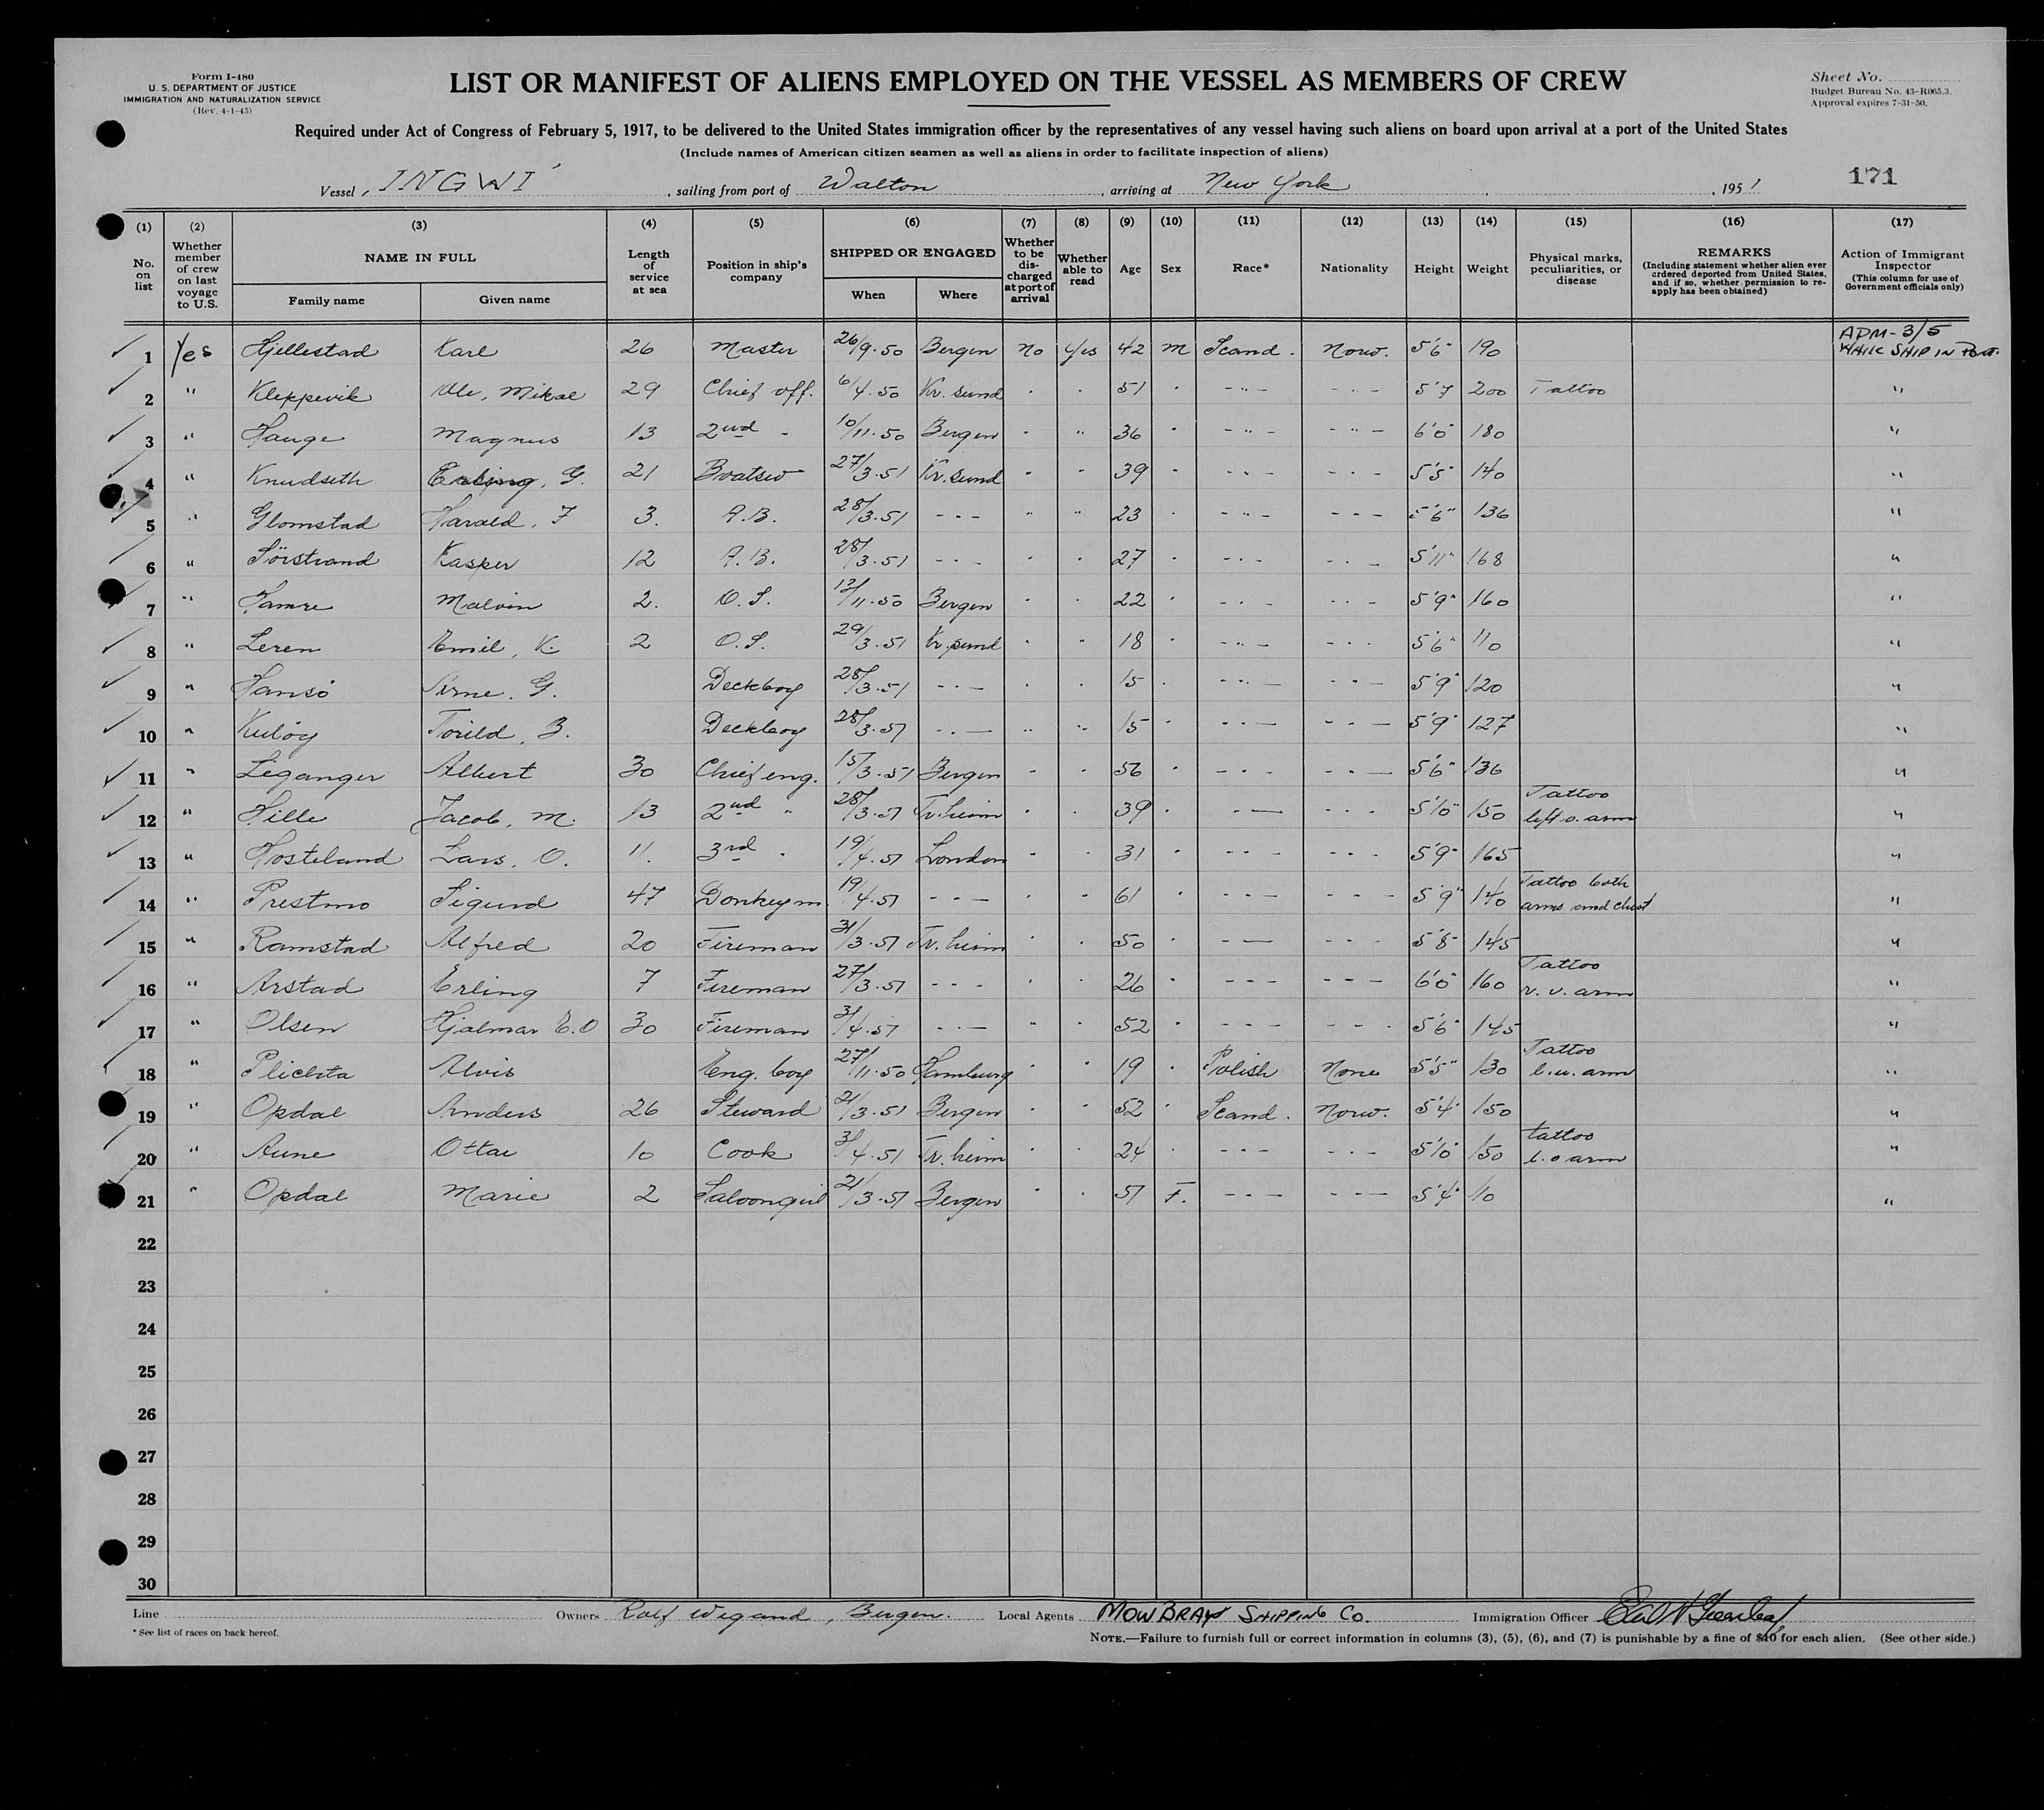 Form I-480
U. S. DEPARTMENT OF JUSTICE
IMMIGRATION AND NATURALIZATION SERVICE
(Rev. 4-1-45)
LIST OR MANIFEST OF ALIENS EMPLOYED ON THE VESSEL AS MEMBERS OF CREW
Sheet No.
Budget Bureau No. 43-R065.3.
Approval expires 7-31-50.
Required under Act of Congress of February 5, 1917, to be delivered to the United States immigration officer by the representatives of any vessel having such aliens on board upon arrival at a port of the United States
(Include names of American citizen seamen as well as aliens in order to facilitate inspection of aliens)
Vessel, INGWI, sailing from port of Walton, arriving at New York, 1951 171
(1) (2) (3) (4) (5) (6) (7) (8) (9) (10) (11) (12) (13) (14) (15) (16) (17)
No. on list
Whether member of crew on last voyage to U.S.
NAME IN FULL
Family name Given name
Length of service at sea
Position in ship's company
SHIPPED OR ENGAGED
When Where
Whether to be discharged at port of arrival
Whether able to read
Age Sex Race* Nationality Height Weight
Physical marks, peculiarities, or disease
REMARKS
(Including statement whether alien ever ordered deported from United States, and if so, whether permission to re-apply has been obtained)
Action of Immigrant Inspector
(This column for use of Government officials only)
ADM-3/5
1 Yes Hjellestad Karl 26 Master 26/9.50 Bergen No Yes 42 M Scand. Norw. 5'6" 190 WHILE SHIP IN Port.
2 " Kleppevik Ole, Mikal 29 Chief off. 6/4.50 Kr.sund " " 51 " - " - - " - 5'7 200 Tattoo "
3 " Hauge Magnus 13 2nd " 10/11.50 Bergen " " 36 " - " - - " - 6'0" 180 "
4 " Knudseth Erling, G. 21 Boatsw 27/3.51 Kr.sund " " 39 " - " - - " - 5'5" 140 "
5 " Glomstad Harald, F 3. A.B. 28/3.51 - " - " " 23 " - " - - " - 5'6" 136 "
6 " Sörstrand Kasper 12 A.B. 28/3.51 - " - " " 27 " - " - - " - 5'11" 168 "
7 " Hamre Malvin 2. O.S. 12/11.50 Bergen " " 22 " - " - - " - 5'9" 160 "
8 " Leren Emil, K. 2 O.S. 29/3.51 Kr.sund " " 18 " - " - - " - 5'6" 110 "
9 " Hansö Arne, G. Deckboy 28/3.51 - " - " " 15 " - " - - " - 5'9" 120 "
10 " Kulöy Torild, B. Deckboy 28/3.51 - " - " " 15 " - " - - " - 5'9" 127 "
11 " Leganger Albert 30 Chief eng. 15/3.51 Bergen " " 56 " - " - - " - 5'6" 136 "
12 " Hille Jacob, M. 13 2nd " 28/3.51 Tr.heim " " 39 " - " - - " - 5'10" 150 Tattoo left o. arm "
13 " Hosteland Lars, O. 11. 3rd " 19/4.51 London " " 31 " - " - - " - 5'9" 165 "
14 " Prestmo Sigurd 47 Donkeym. 19/4.51 - " - " " 61 " - " - - " - 5'9" 140 Tattoo both arms and chest "
15 " Ramstad Alfred 20 Fireman 31/3.51 Tr.heim " " 50 " - " - - " - 5'8" 145 "
16 " Arstad Erling 7 Fireman 27/3.51 - " - " " 26 " - " - - " - 6'0" 160 Tattoo r. u. arm "
17 " Olsen Hjalmar E.O 30 Fireman 3/4.51 - " - " " 52 " - " - - " - 5'6" 145 "
18 " Plichta Alvis Eng. boy 27/11.50 Hamburg " " 19 " Polish None 5'5" 130 Tattoo l.u. arm "
19 " Opdal Anders 26 Steward 21/3.51 Bergen " " 52 " Scand. Norw. 5'4" 150 "
20 " Aune Ottar 10 Cook 3/4.51 Tr.heim " " 24 " - " - - " - 5'10" 150 tattoo l. o arm "
21 " Opdal Marie 2 Saloongirl 21/3.51 Bergen " " 51 F. - " - - " - 5'4" 110 "
22
23
24
25
26
27
28
29
30
Line Owners Rolf Wigand, Bergen. Local Agents MOWBRAYS SHIPPING CO. Immigration Officer
* See list of races on back hereof.
NOTE.—Failure to furnish full or correct information in columns (3), (5), (6), and (7) is punishable by a fine of $10 for each alien. (See other side.)